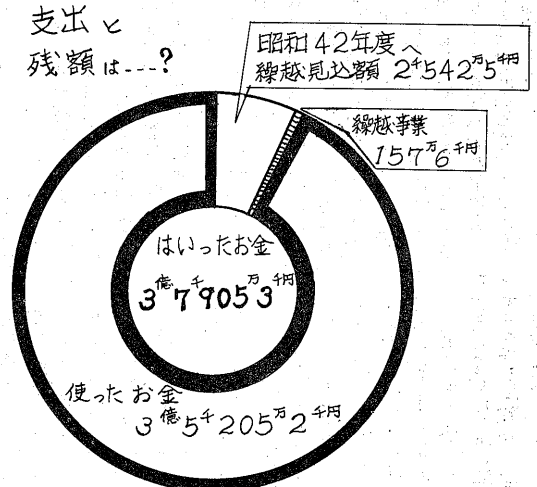 支出と
残額は---?
昭和42年度へ
繰越見込額 2千542万5千円
繰越事業
157万6千円
はいったお金
3億7千905万3千円
使ったお金
3億5千205万2千円